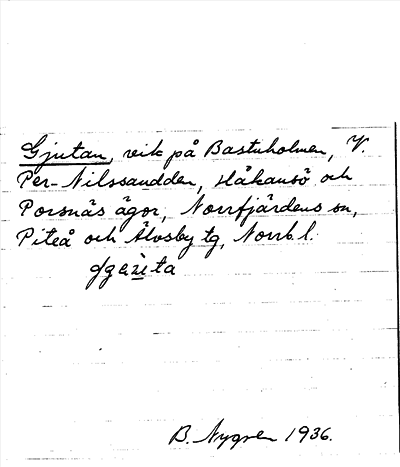 Gjutan, vik på Bastuholmen, V.
Per-Nilssaudden, Håkansö och
Porsnäs ägor, Norrfjärdens sn,
Piteå och Älvsby tg, Norrb. l.
B. Nygren 1936.